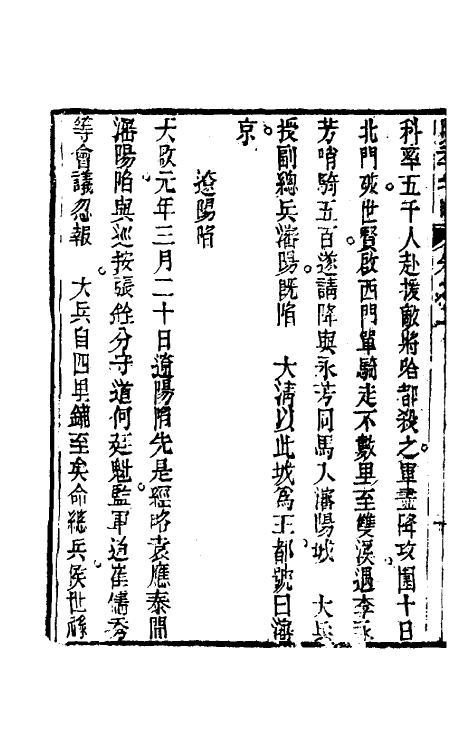 科率五千人赴援敵將哈都殺之軍盡降攻圍十日
北門破世賢啟西門單騎走不數里至雙溪遇李永
芳哨騎五百遂請降與永芳同馬入瀋陽城　大兵
授副總兵瀋陽旣陷　大清以此城爲王都號曰瀋
京
遼陽陷
天啟元年三月二十日遼陽陷先是經略袁應泰聞
瀋陽陷與巡按張銓分守道何廷魁監軍道崔儒秀
等會議忽報　大兵自四里鋪至矣命總兵侯世祿